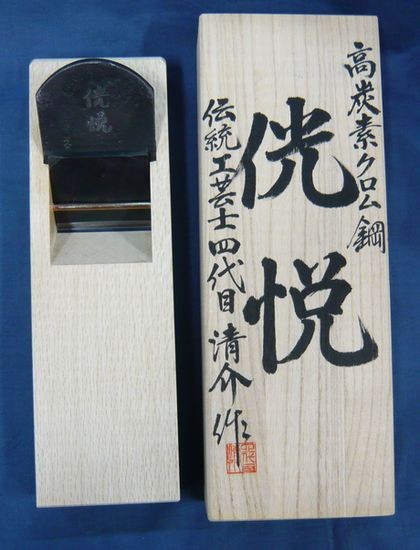 高炭素クロム鋼
侊悦
伝統工芸士四代目清介作
侊悦